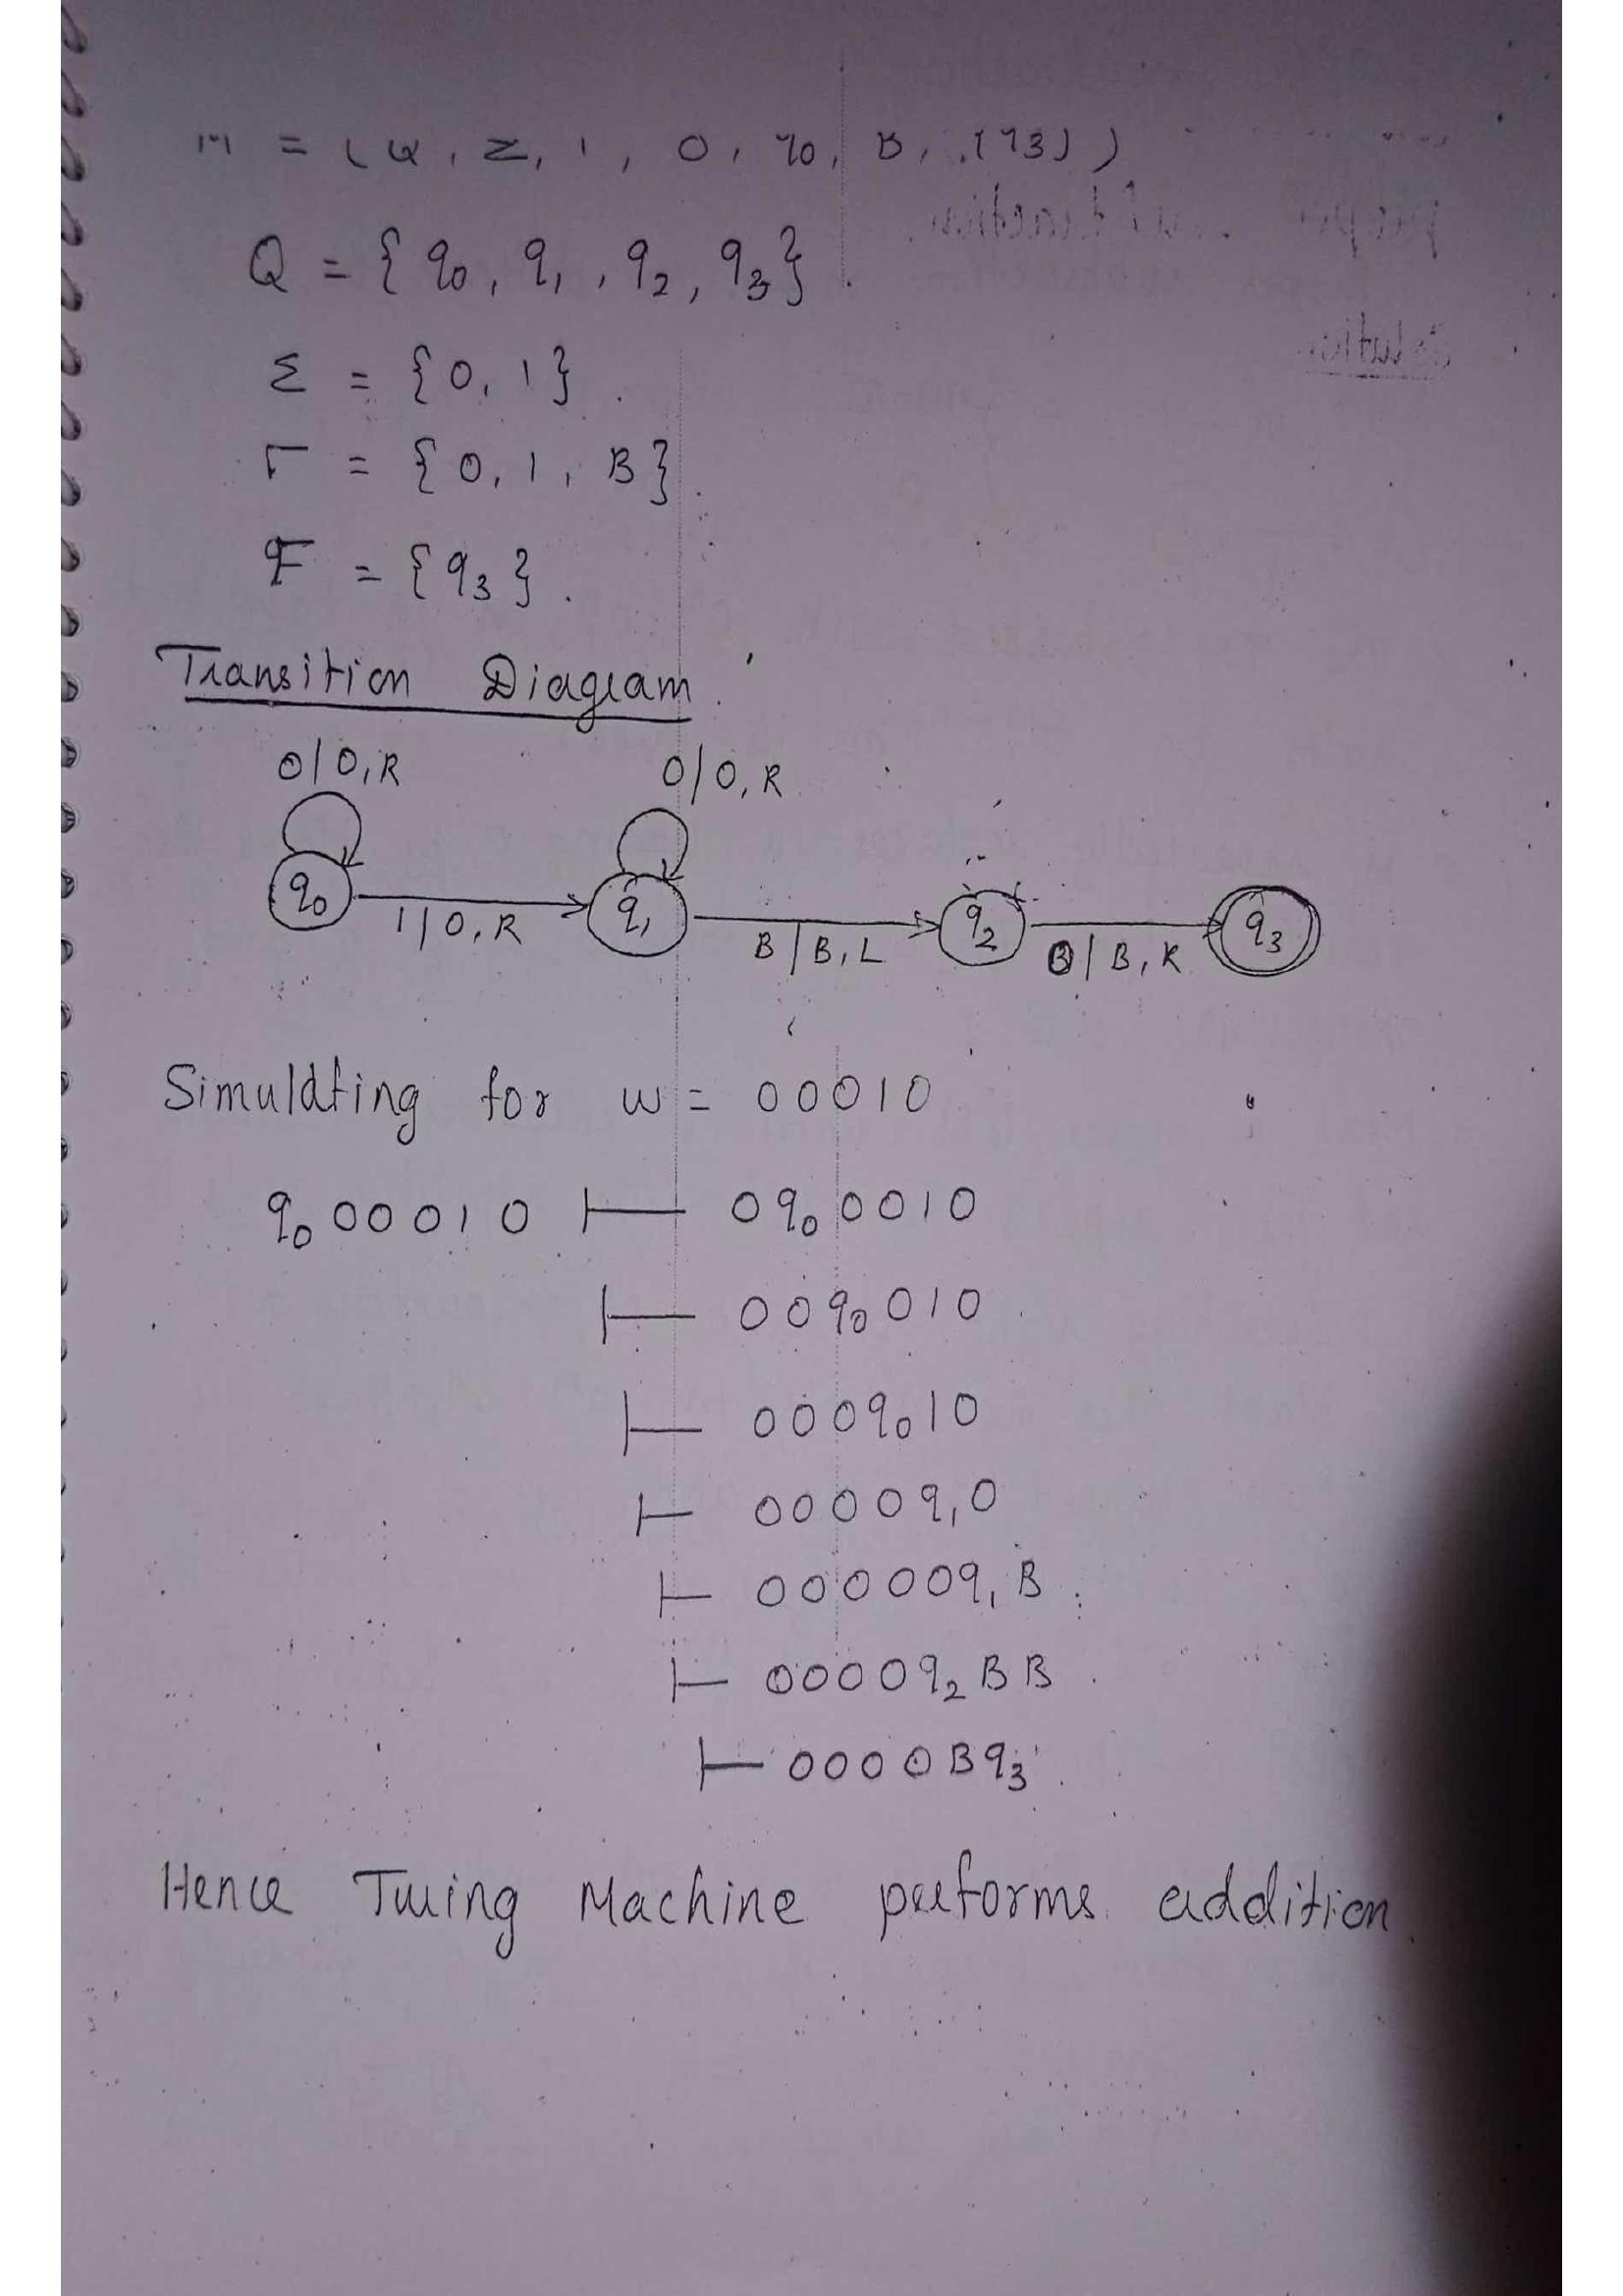 M = (Q, Σ, Γ, δ, q0, B, {q3})
Q = { q0, q1, q2, q3}.
Σ = {0, 1}.
Γ = {0, 1, B}.
F = {q3}.
Transition Diagram.
0/0,R 0/0,R
q0 1/0,R q1 B/B,L q2 0/B,R q3
Simulating for w = 00010
q0 00010 ⊢ 0q00010
⊢ 00q0010
⊢ 000q010
⊢ 0000q10
⊢ 00000q1B
⊢ 0000q2BB
⊢ 0000Bq3.
Hence Turing Machine performs addition.